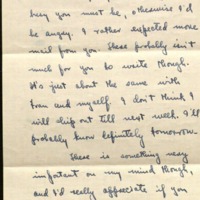 busy you must be, otherwise I'd
be angry. I rather expected more
mail from you. There probably isn't
much for you to write though.
It's just about the same with
Fran and myself. I don't think I
will ship out till next week. I'll
probably know definitely tomorrow.
There is something very
important on my mind though,
and I'd really appreciate if you